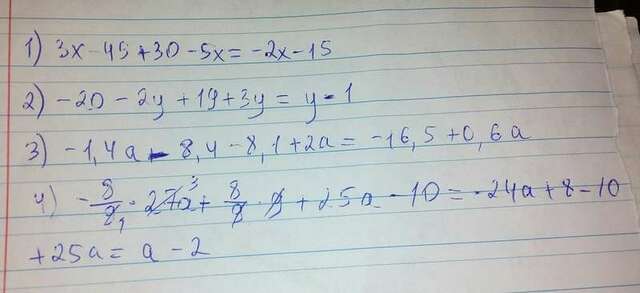 1) 3x - 45 + 30 - 5x = -2x - 15
2) -20 - 2y + 19 + 3y = y - 1
3) -1,4a - 8,4 - 8,1 + 2a = -16,5 + 0,6a
4) - 8/9 · 27a + 8/9 · 9 + 25a - 10 = -24a + 8 - 10
+ 25a = a - 2